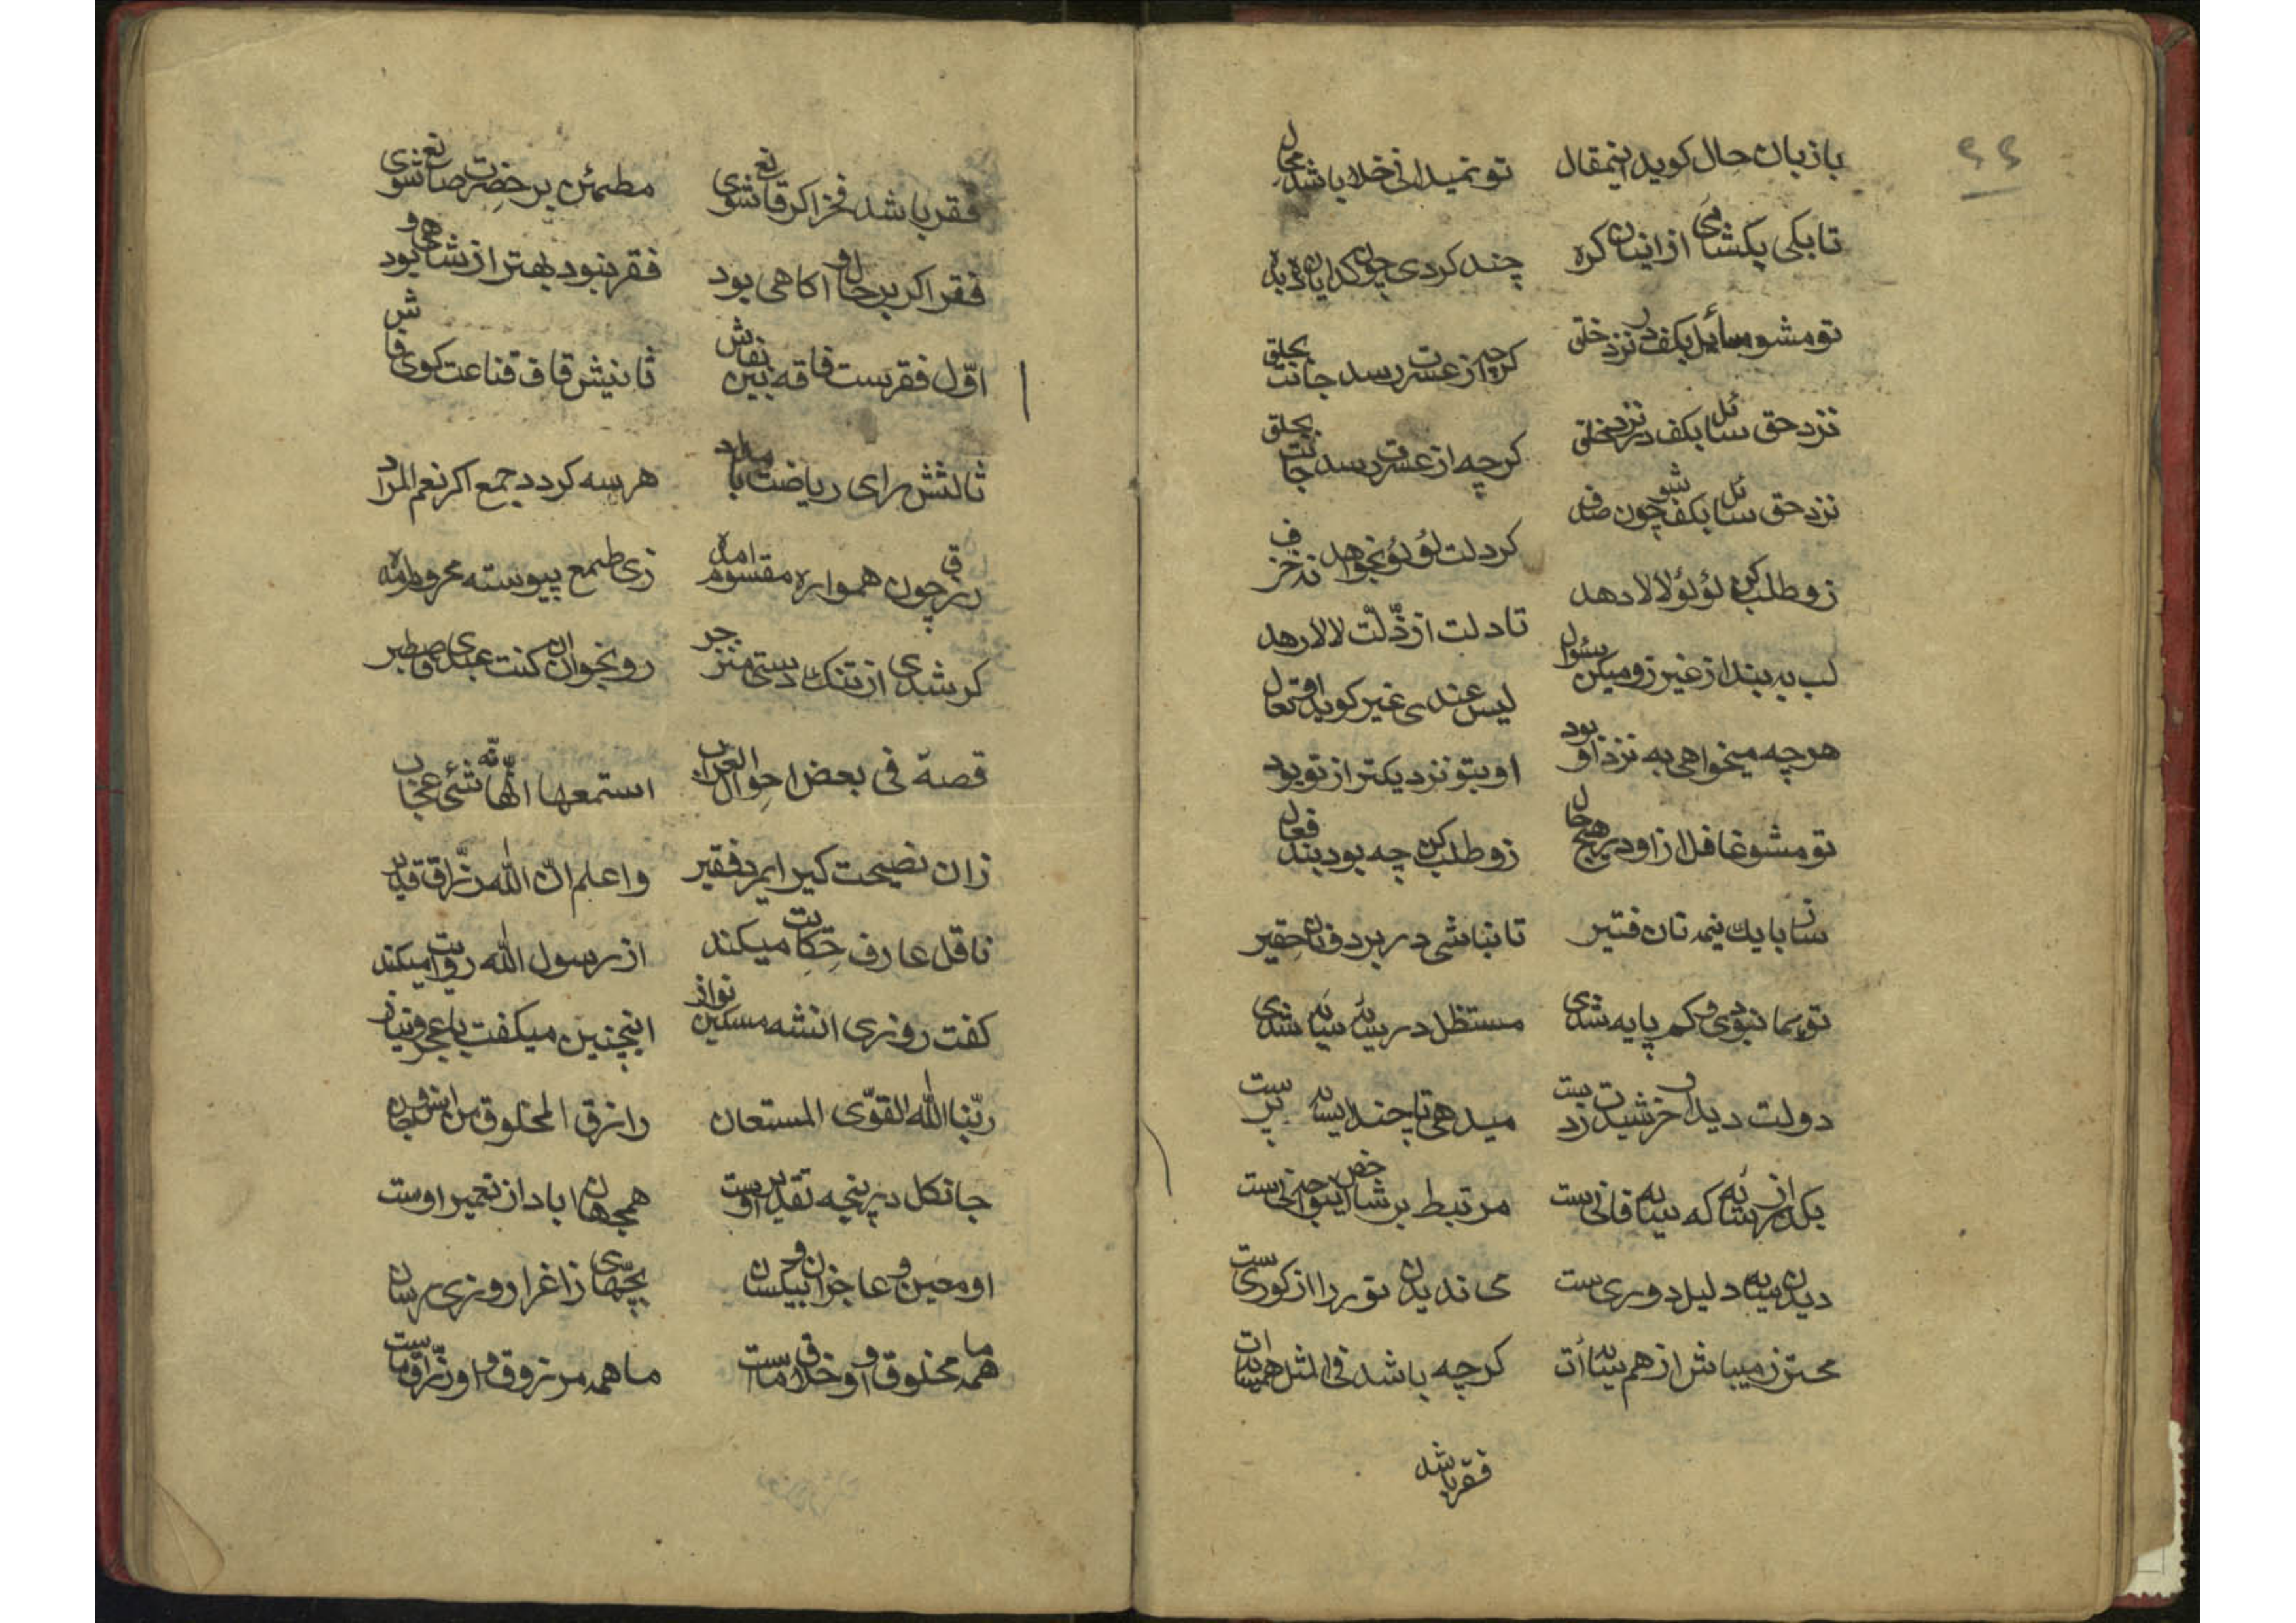 ۶۶
با زبان حال کوید اینمقال تو نمیدانی خلا باشد محال
تا بکی بکشائی از انبان کره چند کردی چون کدایان ده بده
تو مشو سایل بکف در نزد خلق کرچه از عسرت رسد جانت بحلق
نزد حق سائل بکف در نزد خلق کرچه از عسرت رسد جانت بحلق
نزد حق سائل بکف شو چون صدف کر دلت لؤلؤ بخواهد نه خزف
زو طلب کن لؤلؤ لالا دهد تا دلت از ذلّت لالا رهد
لب به بند از غیر زو میکن سئوال لیس عندی غیر کوید افتعال
هرچه میخواهی به نزد او بود او بتو نزدیکتر از تو بود
تو مشو غافل ازاو در هیچ حال زو طلب کن چه بود بند فعال
ساز با یک نیمه نان فتیر تا نباشی در بر دونان حقیر
تو سما نبودی و کم پایه شدی مستظل در سایهٔ سایه شدی
دولت دیدار خرشیدت زد ست میدهی تا چند سایه پرست
بکذر از سایه که سایه فانی ست مرتبط بر شاخص
دیدن سایه دلیل دوری ست می ندیدن تو ردا از کوری ست
محترز میباش از هم سایه‌أت کرچه باشد فی المثل همسایه‌ات
فقر باشد
فقر باشد فخر اکر قانع شوی مطمئن بر حضرت صانع شوی
فقر اکر بر حال و اکاهی بود فقر نبود بهتر از شاهی بود
اوّل فقرست فاقه بین نفاش ثانیش قاف قناعت کوی فاش
ثالثش رای ریاضت باد هر سه کردد جمع اکر نعم المراد
رزق چون همواره مقسوم امده زی طمع پیوسته محروم امده
کر شدی از تنک دستی منزجر رو بخوان ان کنت عبدی فاصطبر
قصة فی بعض احوال استمعها انّها شئی عجاب
زان نصیحت کیر ایمرد فقیر واعلم انّ اللّه رزّاق قدیر
ناقل عارف حکایت میکند از رسول اللّه روایت میکند
کفت روزی انشه مسکین نواز اینچنین میکفت با عجز و نیاز
ربّنا اللّه القوّی المستعان رازق المخلوق من انس و جان
جانکل در پنجه تقدیر اوست همجهان اباد از تعمیر اوست
او معین عاجزان و بیکسان بچّهای زاغ را روزی رسان
ما همه مخلوق و او خلاق ماست ما همه مرزوق و او رزّاق ماست